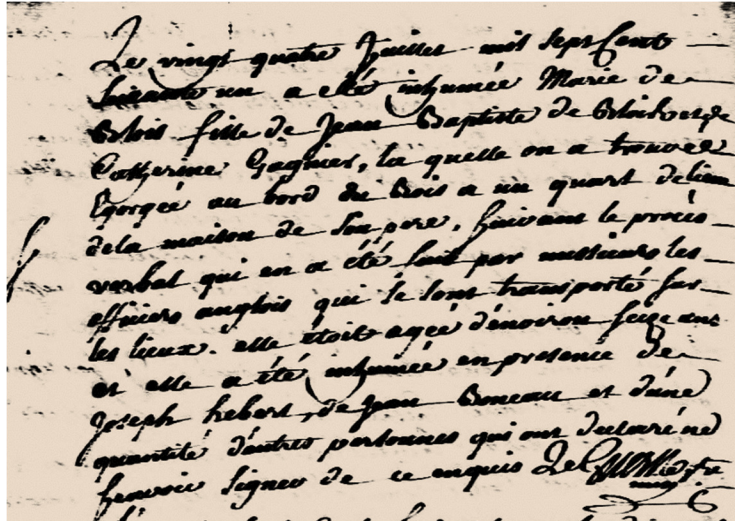 Le vingt quatre Juillet mil sept Cent
soixante un a eté inhumée Marie de
Blois fille de Jean Baptiste de Blois et de
Catherine Gagnier, la quelle on a trouvée
Egorgée au bord du Bois a un quart de lieue
de la maison de son pere, suivant le procès
verbal qui en a été fait par messieurs les
officiers anglois qui se sont transporté sur
les lieux. elle étoit agée d'environ seize ans
et elle a été inhumée en presence de
Joseph hebert, de Jean et d'une
quantité d'autres personnes qui ont declaré ne
sçavoir signer de ce enquis ptre